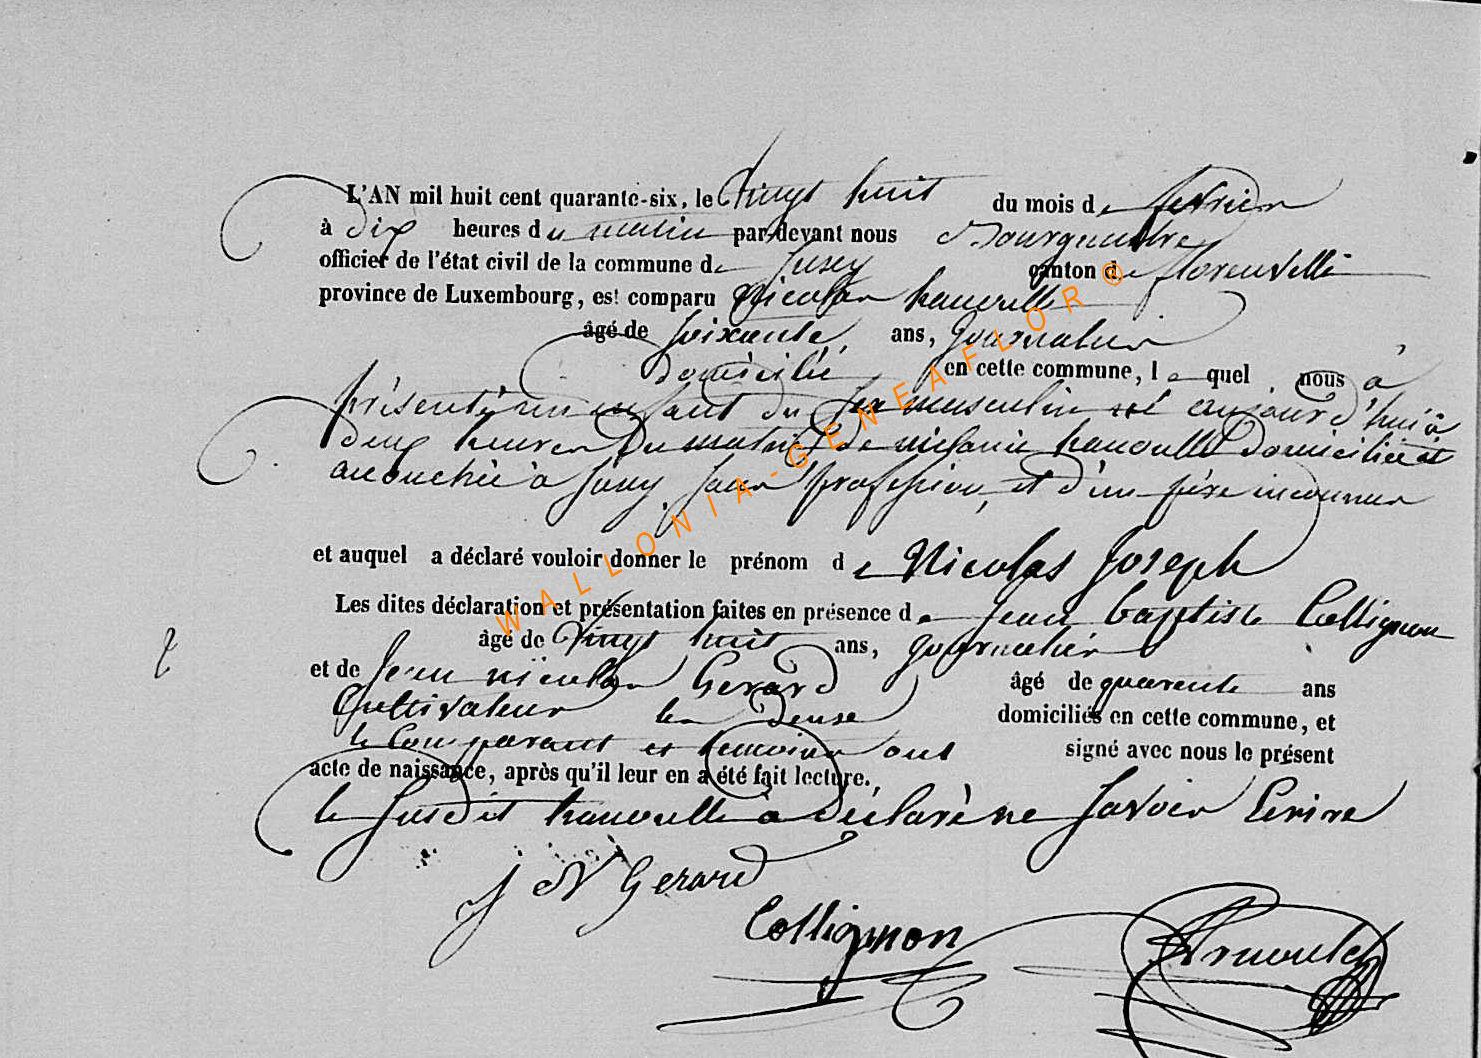 L'AN mil huit cent quarante-six, le Vingt huit du mois de fevrier
à dix heures du matin par-devant nous Bourguemaître
officier de l'état civil de la commune de Jusey canton de florenville
province de Luxembourg, est comparu Nicolas hanoulle
âgé de soixante ans, Journalier
domicilié en cette commune, lequel nous à
présenté un enfant du sexe masculin né aujourd'hui à
deux heures du matin de mélanie hanoulle domiciliée et
accouchée à Jusey, sans profession, et d'un père inconnu
et auquel a déclaré vouloir donner le prénom de Nicolas Joseph
Les dites déclaration et présentation faites en présence de jean baptiste Collignon
âgé de Vingt huit ans, journalier
et de Jean nicolas Gerard âgé de quarente ans
Cultivateur les deux domiciliés en cette commune, et
le Comparant et temoins ont signé avec nous le présent
acte de naissance, après qu'il leur en a été fait lecture.,
le susdit hanoulle à déclaré ne savoir Ecrire
J N Gerard
Collignon
WALLONIA-GENEAFLOR ©